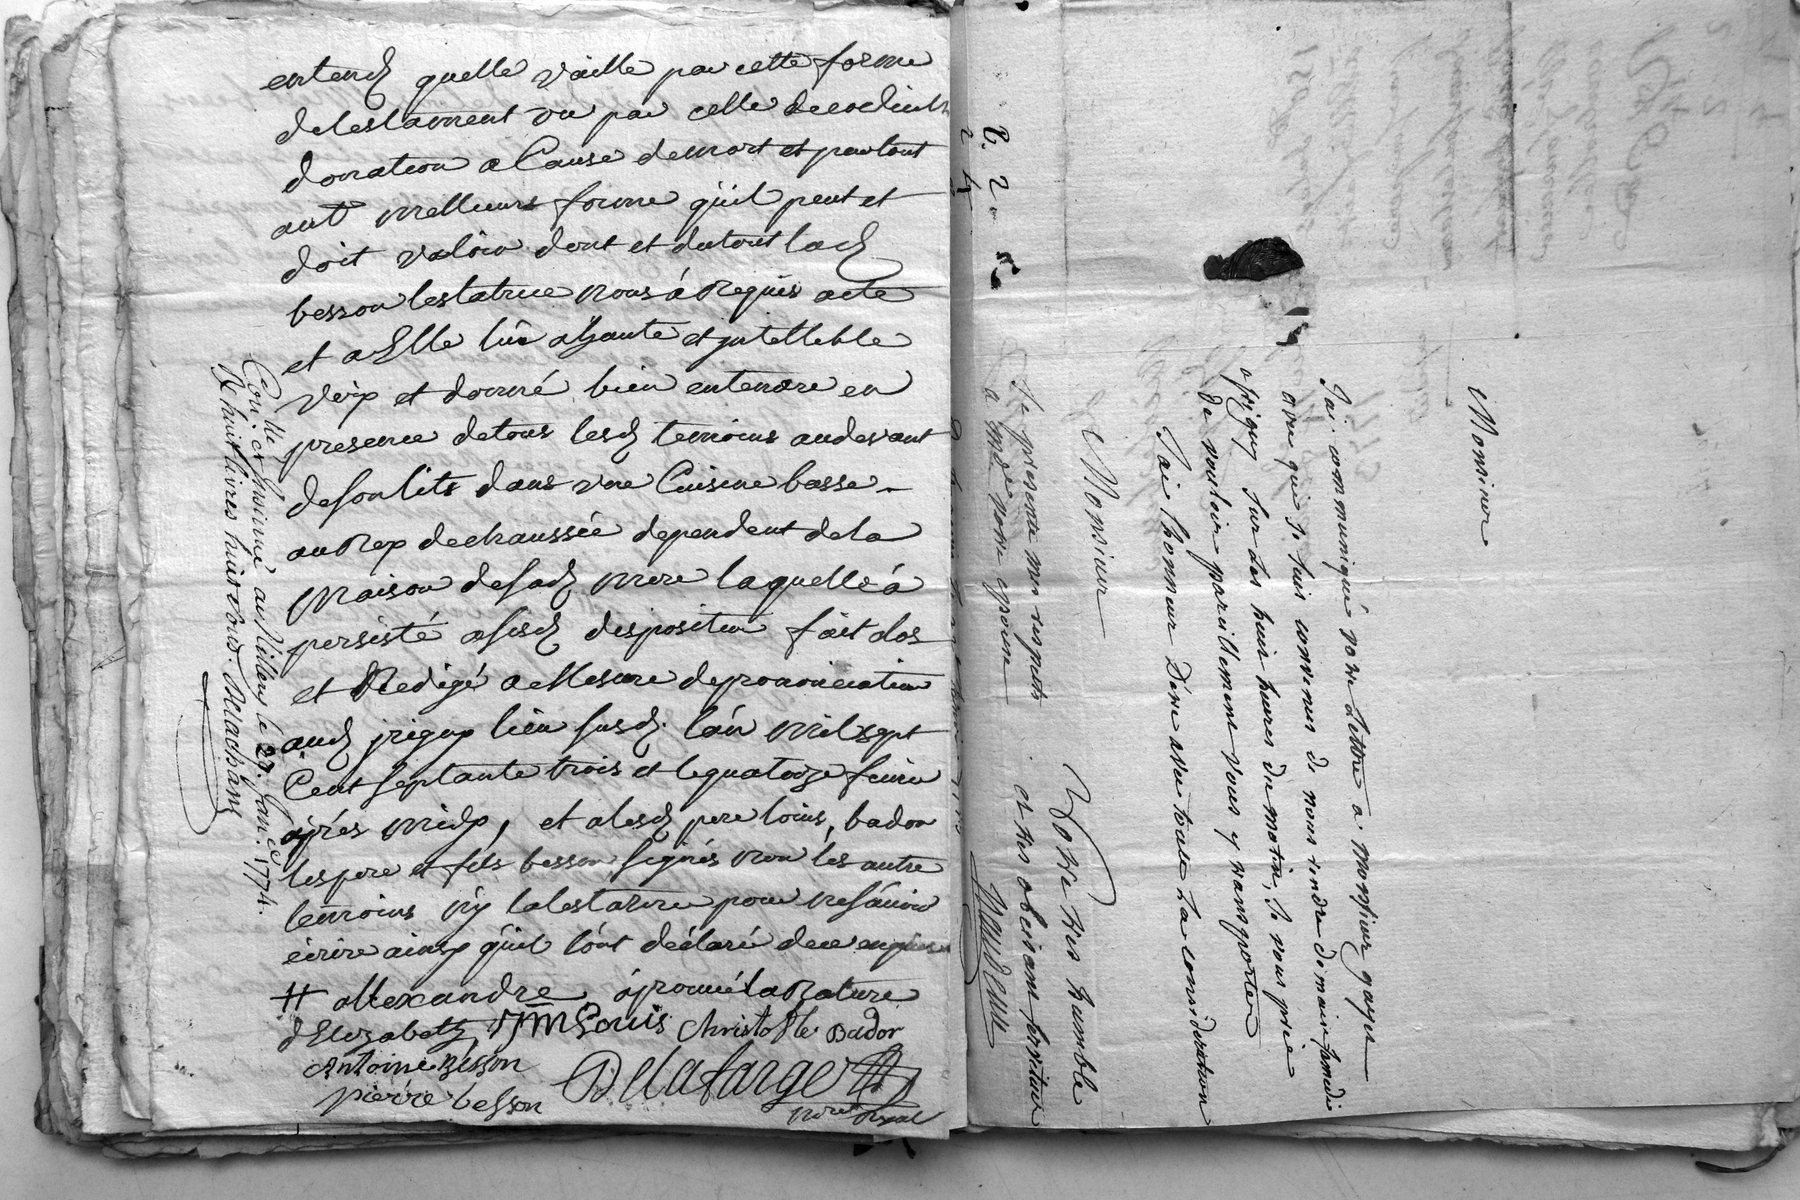 entend quelle vaille par cette forme
detestament ou par celle decodicille
donation a Cause demort et partout
autt meilleure forme quil peut et
doit valoir dont et dutout lad
besson testatrice nous á Requis acte
et a Elle lüe a haute et jntellible
voix et donné bien entendre en
presence detous lesd temoins audevant
desonlits dans une Cuisine basse
au Rex dechaussée dependent dela
Maison desad mere laquelle á
persisté asesd disposition fait clos
et Redigé a Mesure deprononciation
aud jrigny lieu susd. lán mil sept
Cent septante trois et lequatorze fevrier
aprés midy, et alesd pere louis, bador
les pere et fils besson signés non les autre
temoins ny latestatrice pour ne sávoir
écrire ainsy quil lónt déclaré dece enquis
# allexandre áprouvé la Rature
d'Elizabeth JM Louis Christofle Bador
Antoine Besson
pierre besson
Delafarge
Nore Royal
Con.lé et Insinué au Villars le 27. Janv. 1774.
R huit livres huit sous. Delachans
Monsieur
J'ai communiqué votre Lettre à Monsieur gayet
avec qui Je suis convenus de nous rendre demain samedi
a jrigny sur les huit heures du matin, Je vous prie
de vouloir pareillement vous y transporter
J'ai Lhonneur Dètre avec toute La consideration
Monsieur
Votre très humble
et très obeissant serviteur
Je présente mes respects
a Md.e votre epouse